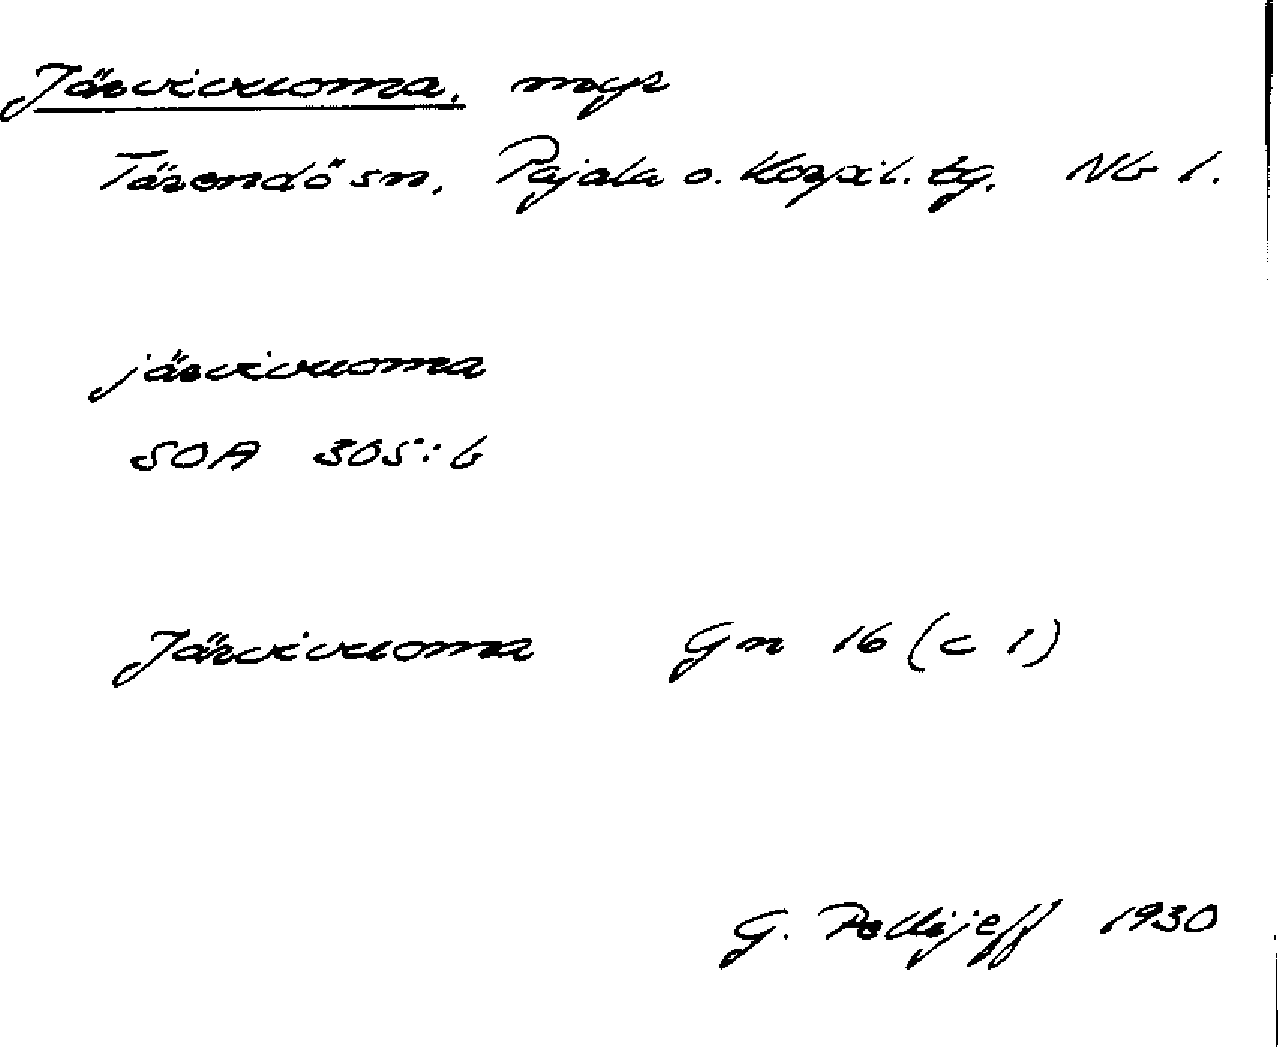 Järvivuoma, myr
Tärendö sn, Pajala o. Korpil. tg. Nb l.
järvivuoma
SOA 305:6
Järvivuoma Gn 16 (c 1)
G. Pellijeff 1930